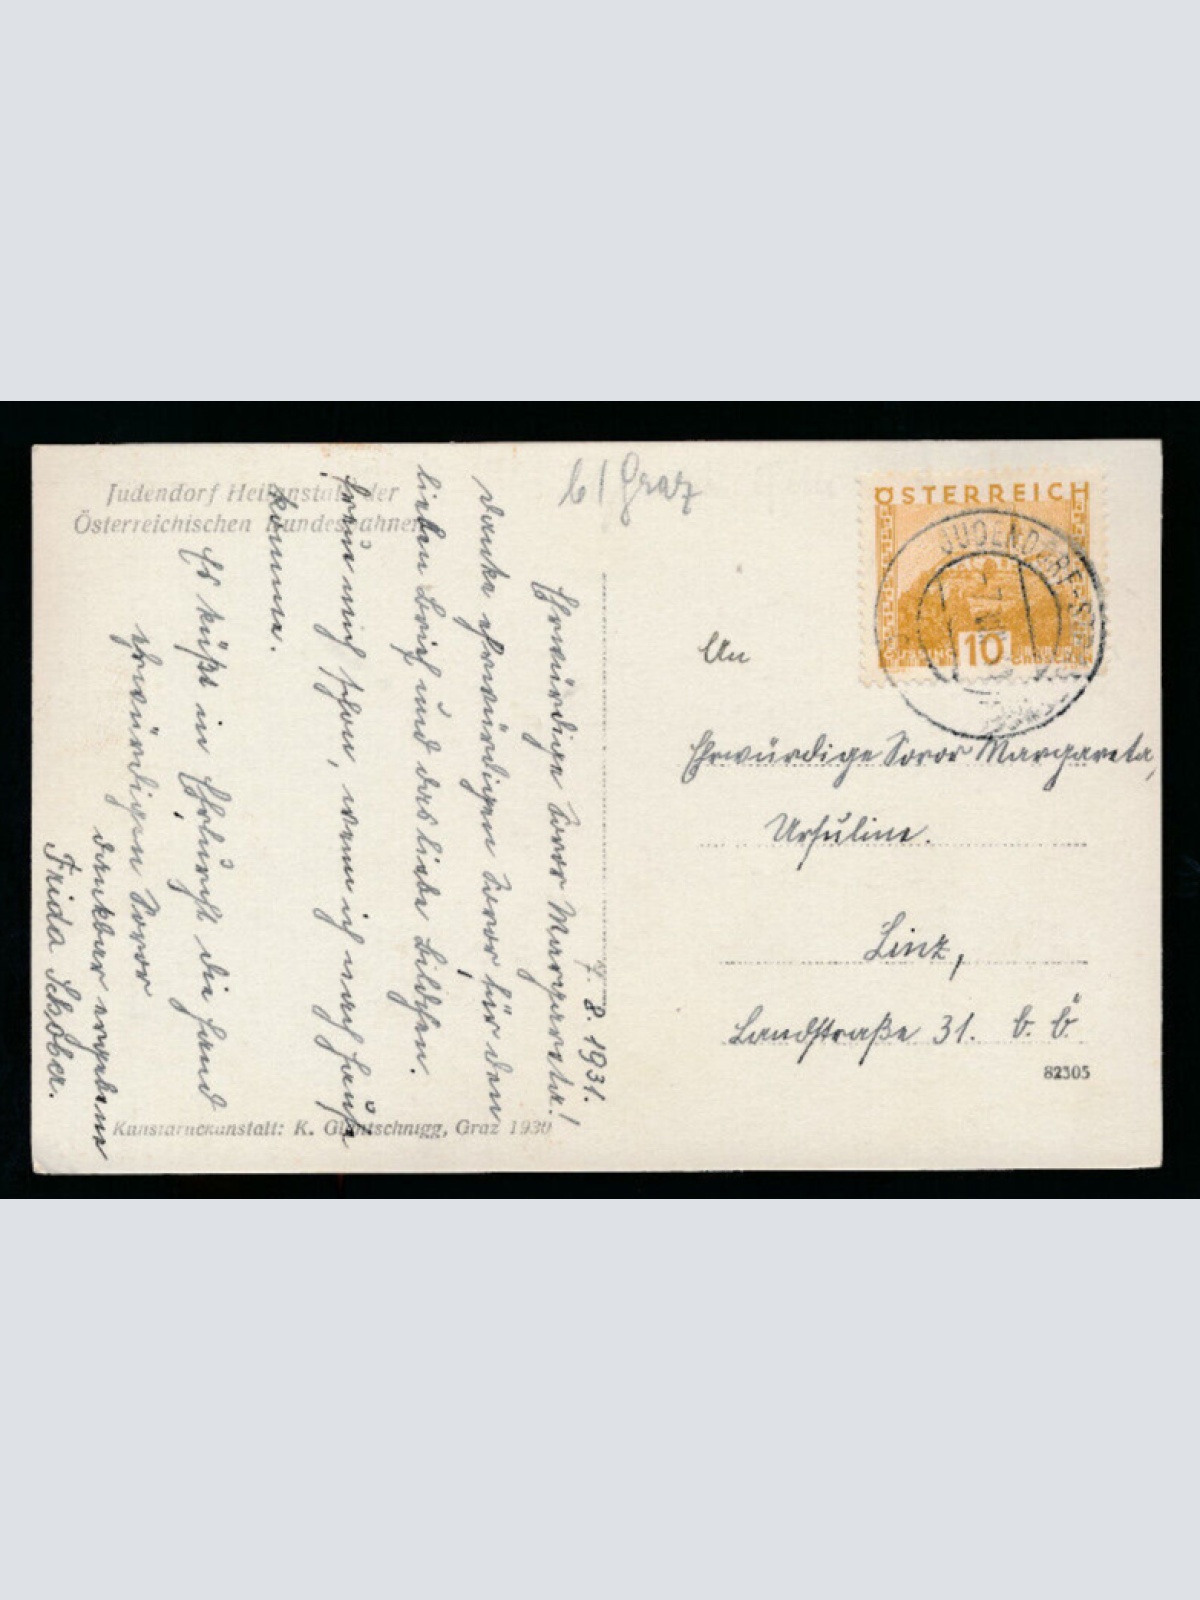 Judendorf Heilanstalt der
Österreichischen Bundesbahnen
b/Graz
8. 1931.
Ehrwürdige Soror Margareta!
Danke ehrwürdigen Soror für den
lieben Brief und das liebe Bildchen.
Freue mich schon, wenn ich nach Hause
komme.
Es küßt in Ehrfurcht die Hand
ehrwürdigen Soror
dankbar ergebene
Frida Schober.
Kunstdruckanstalt: K. Glantschnigg, Graz 1930
ÖSTERREICH
10
GROSCHEN
JUDENDORF-ST
An
Ehrwürdige Soror Margareta,
Ursuline.
Linz,
Landstraße 31. b. b.
82305